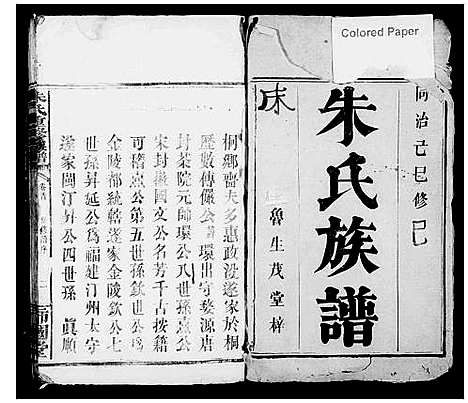 Colored Paper
同治己巳修
朱氏族譜
魯生茂堂梓
桐鄉嗇夫多惠政沒遂家於桐
歷數傳儼公環出守婺源唐
封茶院元帥環公八世孫熹公
宋封徽國文公名芳千古按籍
可稽熹公第五世孫欽世公
金陵都統轄遂家金陵欽公七
世孫昇延公為福建汀州太守
遂家閩汀昇公四世孫 真順